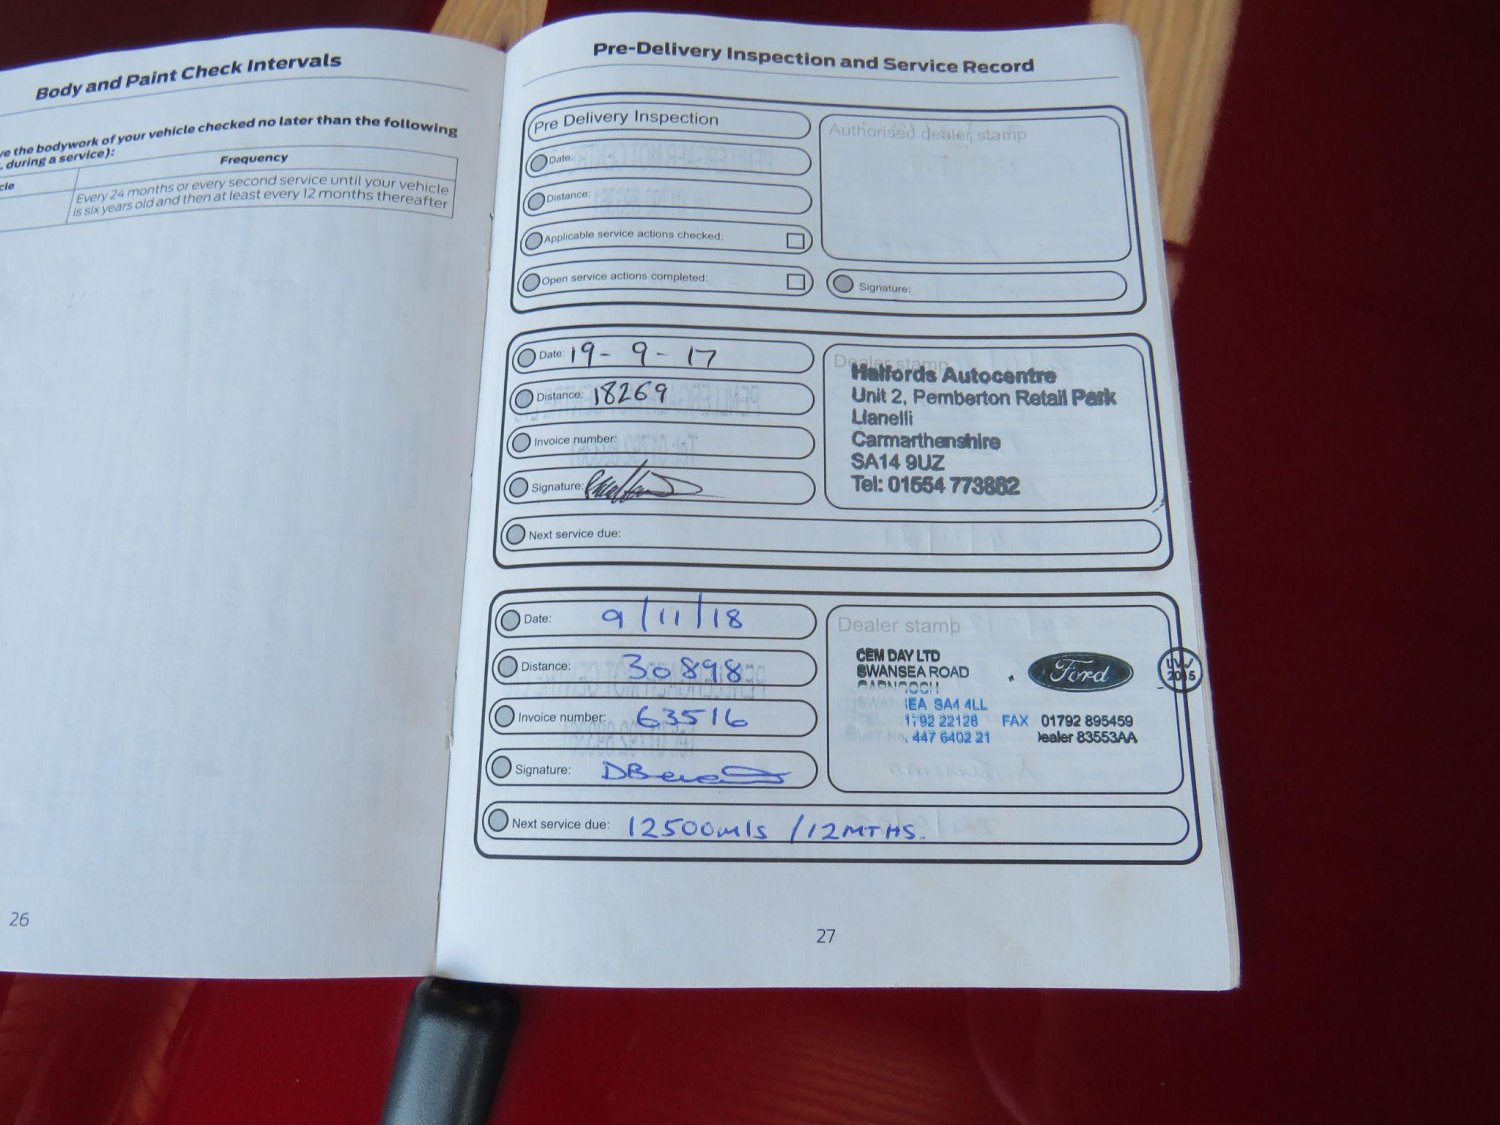 Body and Paint Check Intervals
ve the bodywork of your vehicle checked no later than the following
. during a service):
cle
Frequency
Every 24 months or every second service until your vehicle
is six years old and then at least every 12 months thereafter
26
Pre-Delivery Inspection and Service Record
Pre Delivery Inspection
Authorised dealer stamp
Date:
Distance:
Applicable service actions checked:
Open service actions completed:
Signature:
Date: 19-9-17
Distance: 18269
Invoice number:
Signature:
Next service due:
Dealer stamp
Halfords Autocentre
Unit 2, Pemberton Retail Park
Llanelli
Carmarthenshire
SA14 9UZ
Tel: 01554 773882
Date: 9/11/18
Distance: 30898
Invoice number: 63516
Signature:
Next service due: 12500mls /12MTHS.
Dealer stamp
CEM DAY LTD
SWANSEA ROAD
EA SA4 4LL
1792 22128 FAX 01792 895459
447 6402 21 ealer 83553AA
Ford
27